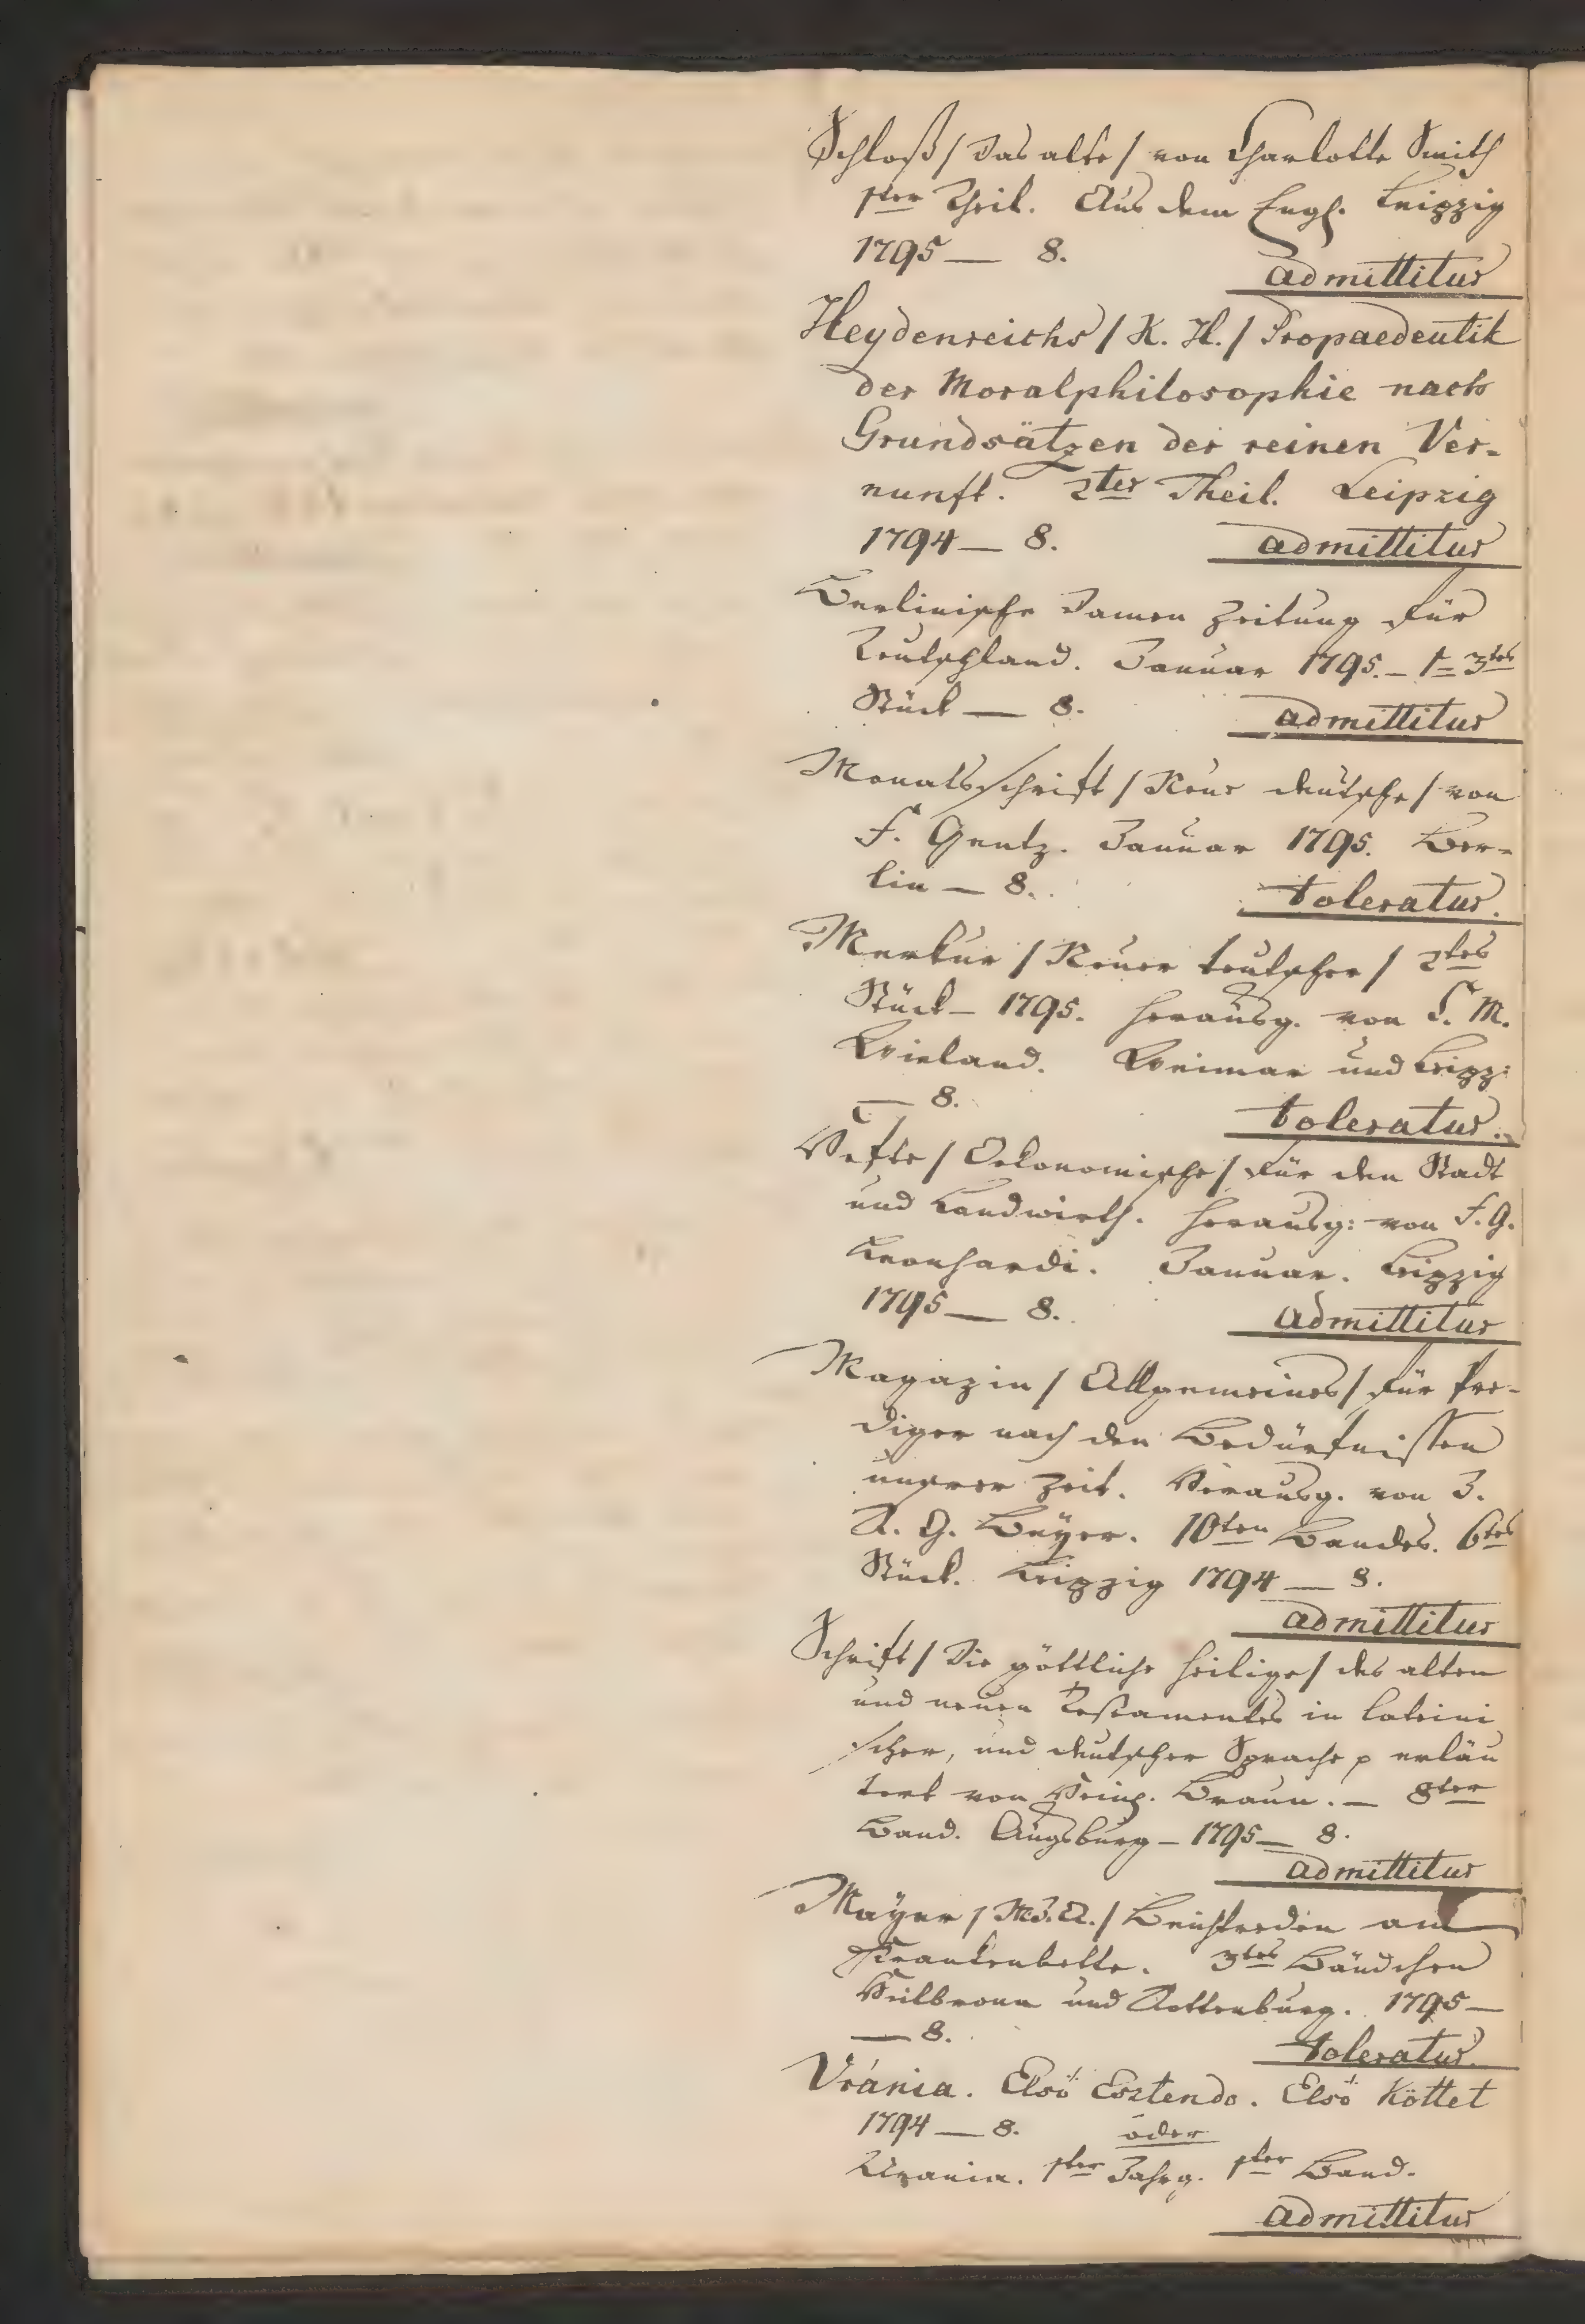 Schloß / Das alte / von Charlotte Smith
1ter Theil. Aus dem Engl. Leipzig
1795 — 8.
admittitur
Heydenreichs / K. H. / Propaedeutik
der Moralphilosophie nach
Grundsätzen der reinen Ver-
nunft. 2ter Theil. Leipzig
1794 — 8.
admittitur
Berlinische Damen Zeitung für
Teutschland. Januar 1795. – 1 = 3tes
Stück — 8.
admittitur
Monatsschrift / Neue deutsche / von
F. Gentz. Januar 1795. Ber-
lin — 8.
toleratur.
Merkur / Neuer teutscher / 2tes
Stück – 1795. herausg. von C. M.
Wieland. Weimar und Leipz:
— 8.
toleratur.
Hefte / Oekonomische / für den Stadt
und Landwirth. herausg: von F. G.
Leonhardi. Januar. Leipzig
1795 — 8.
admittitur
Magazin / Allgemeines / für Pre-
diger nach den Bedürfnissen
unsrer Zeit. Herausg. von J.
R. G. Beyer. 10ten Bandes. 6tes
Stück. Leipzig 1794 — 8.
admittitur
Schrift / Die göttliche heilige / des alten
und neuen Testamentes in lateini
scher, und deutscher Sprache p erläu
tert von Heinr. Braun. — 8ter
Band. Augsburg – 1795 — 8.
admittitur
Mayer / M. J. A. / Beichtreden am
Krankenbette. 3tes Bändchen
Heilbronn und Rottenburg. 1795 —
— 8.
toleratur.
Uránia. Elsö Esztendo. Elsö Köttet
1794 — 8. oder
Urania. 1ter Jahrg. 1ter Band.
admittitur